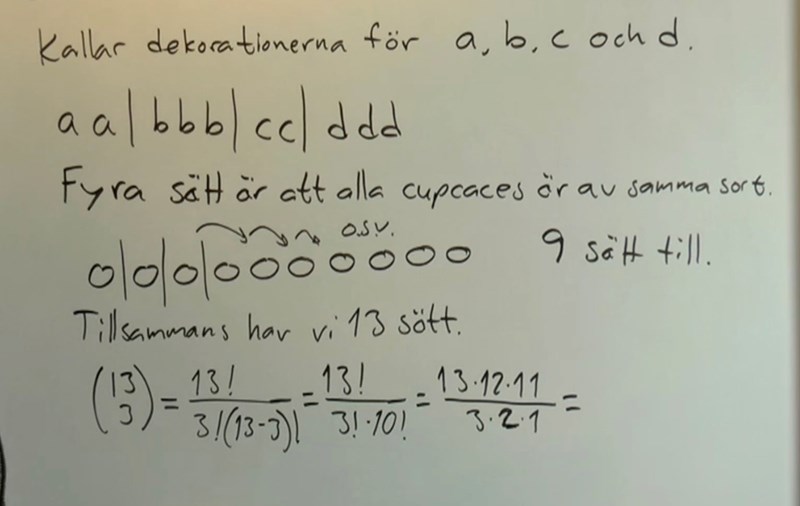 Kallar dekorationerna för a, b, c och d.
a a | b b b | c c | d d d
Fyra sätt är att alla cupcaces är av samma sort.
o.s.v.
O|O|O|O O O O O O O 9 sätt till.
Tillsammans har vi 13 sött.
(13 3) = 13! / 3!(13-3)! = 13! / 3!·10! = 13·12·11 / 3·2·1 =